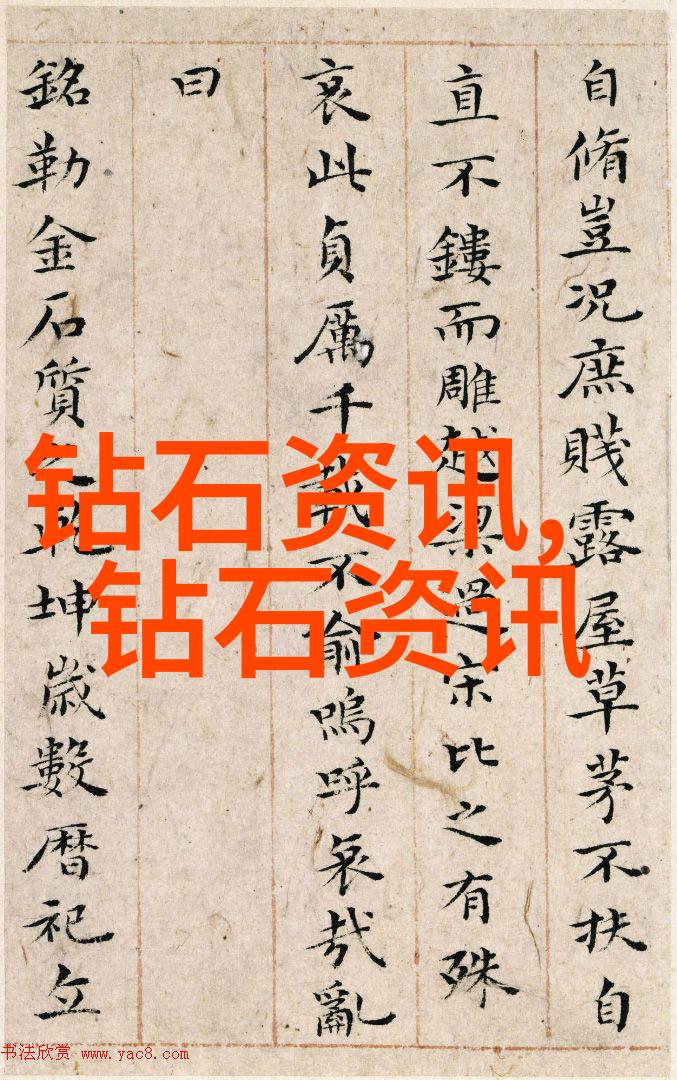 自脩豈况庶賤露屋草茅不扶自
直不鏤而雕越梁過宋比之有殊
哀此貞厲千載不渝嗚呼哀哉亂
曰
銘勒金石質之乾坤歲數暦祀立
钻石资讯,
钻石资讯
书法欣赏 www.yac8.com